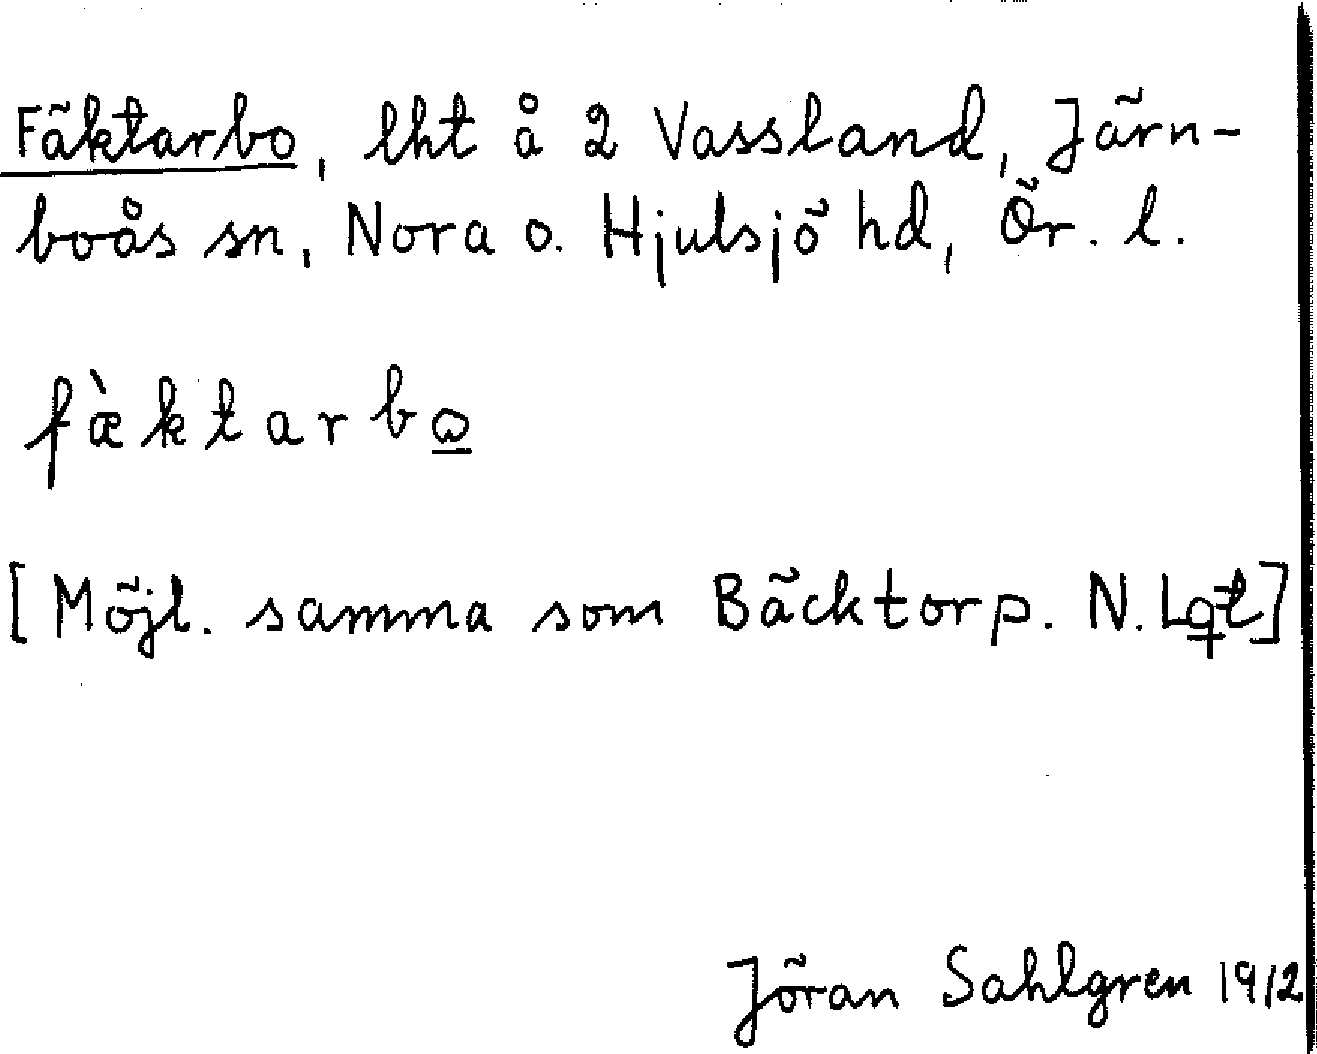 Fäktarbo, lht å 2 Vassland, Järn-
boås sn, Nora o. Hjulsjö hd, Ör. l.
fæ̀ktarbo
[Möjl. samma som Bäcktorp. N. Lqt]
Jöran Sahlgren 1912